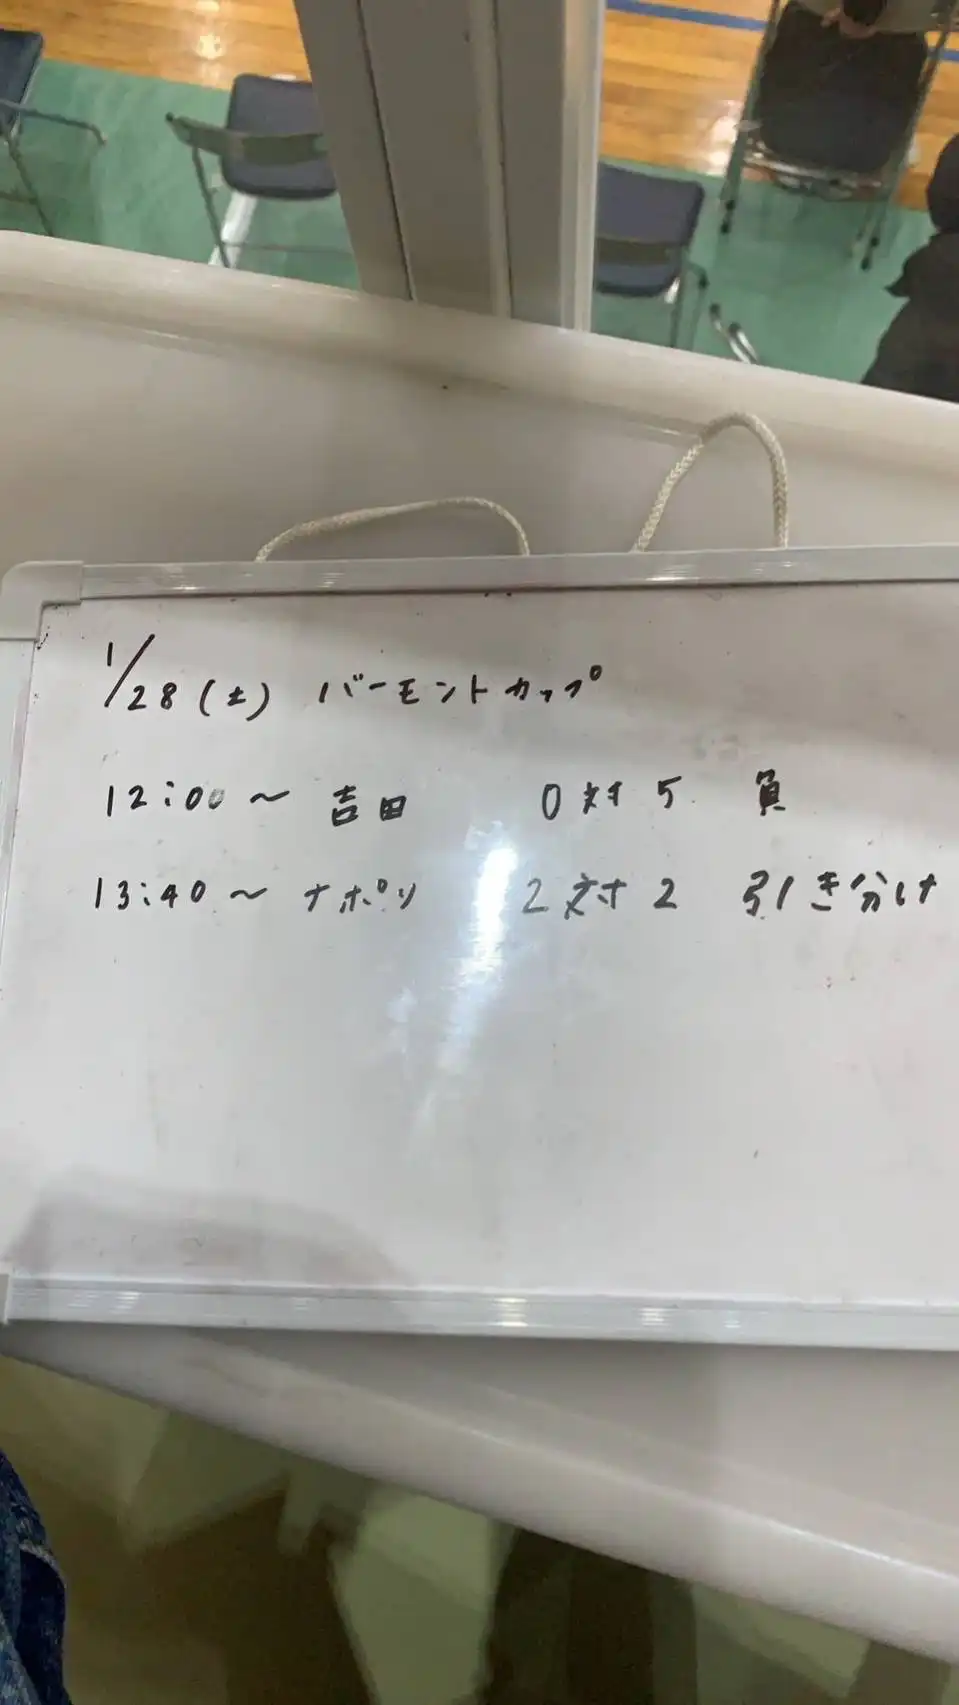 1/28(土) バーモントカップ
12:00～ 吉田 0対5 負
13:40～ ナポリ 2対2 引き分け